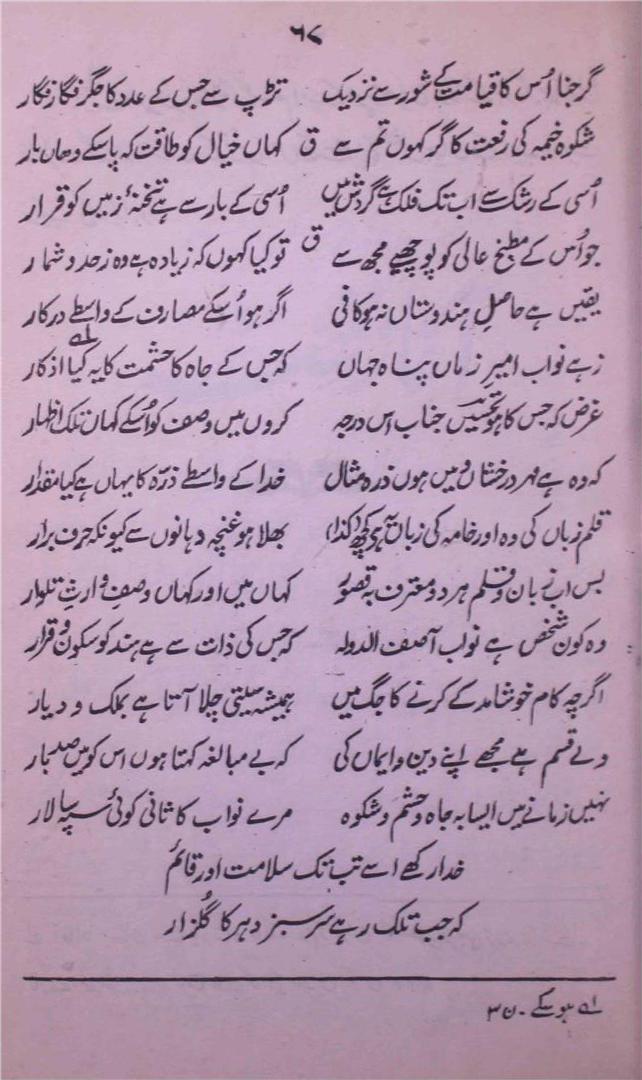 ۶۷
گر جنا اُس کا قیامت کے شور سے نزدیک تڑپ سے جس کے عدد کا جگر فگار فگار
شکوہِ خیمہ کی رفعت کا گر کہوں تم سے ق کہاں خیال کو طاقت کہ پا سکے وھاں بار
اُسی کے رشک سے اب تک فلک ہے گردش میں اُسی کے بار سے ہے تختۂ زمیں کو قرار
جو اُس کے مطبخِ عالی کو پوچھیے مجھ سے ق تو کیا کہوں کہ زیادہ ہے وہ زحد و شمار
یقیں ہے حاصلِ ہندوستاں نہ ہو کافی اگر ہو اُسکے مصارف کے واسطے درکار
زہے نواب امیرِ زماں پناہ جہاں کہ جس کے جاہ کا حشمت کا یہ کیا اذکار ؎۱
غرض کہ جس کا ہو تحسیں جناب اس درجہ کروں میں وصف کو اُسکے کہاں تلک اظہار
کہ وہ ہے مہرِ درخشاں و میں ہوں ذرہ مثال خدا کے واسطے ذرّہ کا یہاں ہے کیا مقدار
قلم زباں کی وہ اور خامہ کی زباں یہ ہی کچھ (کذا) بھلا ہو غنچہ دہانوں سے کیونکہ حرف برار
بس اب زبان و قلم ہر دو معترف بہ قصور کہاں میں اور کہاں وصفِ وارثِ تلوار
وہ کون شخص ہے نواب آصف الدولہ کہ جس کی ذات سے ہے ہند کو سکون و قرار
اگرچہ کام خوشامد کے کرنے کا جگ میں ہمیشہ سیتی چلا آتا ہے بملک و دیار
ولے قسم ہے مجھے اپنے دین و ایماں کی کہ بے مبالغہ کہتا ہوں اس کو میں صد بار
نہیں زمانے میں ایسا بہ جاہ و حشم و شکوہ مرے نواب کا ثانی کوئی سپہ سالار
خدا رکھے اسے تب تک سلامت اور قائم
کہ جب تلک رہے سرسبز دہر کا گُلزار
؎۱ ہو سکے ۔ ۳۷۰